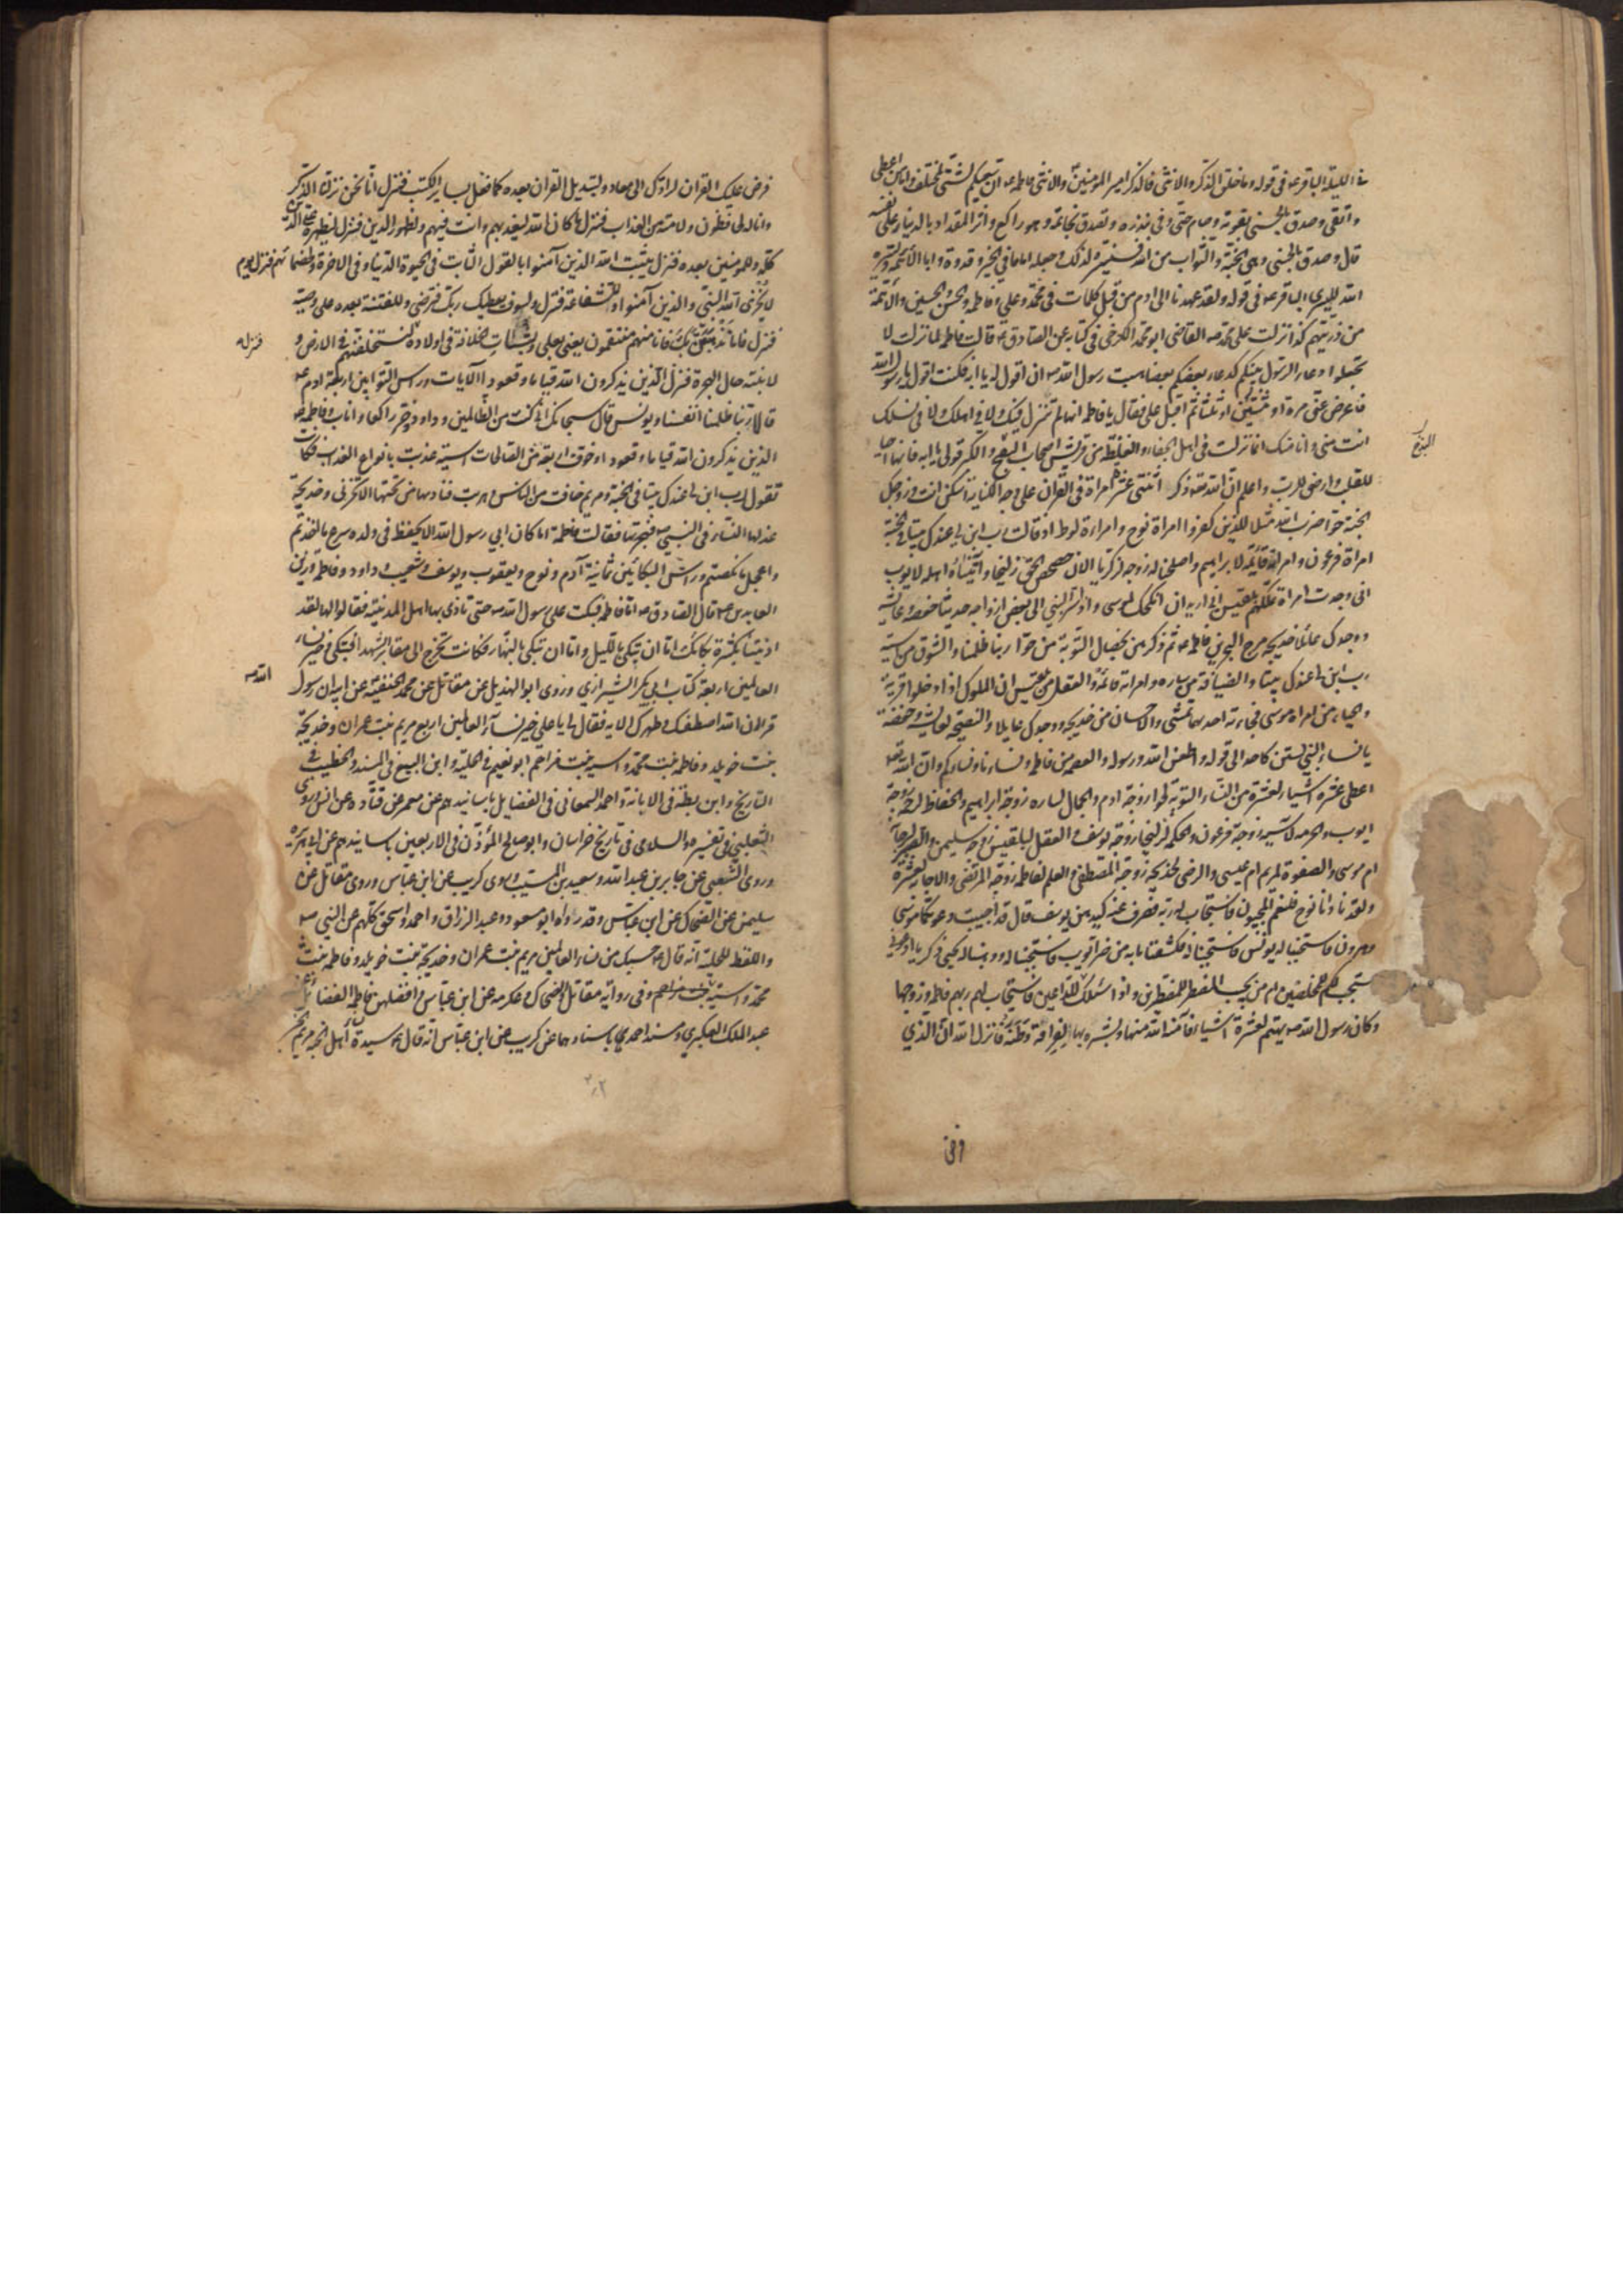 في الليلة الباقر عه في قوله وما خلق الذكر والانثى فالذكر امير المؤمنين والانثى فاطمه عه ان سعيكم لشتى لمختلف فاما من اعطى
واتقى وصدق بالحسنى بقوته وصام حتى وفى بنذره وتصدق بخاتمه وهو راكع واثر المقداد بالدينار على نفسه
قال وصدق بالحسنى وهى الجنة والثواب من الله فسنيسره لذلك وجعله اماما فى الخير وقدوة وابا الائمة يسره
الله لليسرى الباقر عه فى قوله ولقد عهدنا الى ادم من قبل كلمات فى محمد وعلى وفاطمه والحسن والحسين والائمة
من ذريتهم كذا نزلت على محمد صه القاضى ابو محمد الكرخى فى كتابه عن الصادق عه قالت فاطمه لما نزلت لا
تجعلوا دعاء الرسول بينكم كدعاء بعضكم بعضا هبت رسول الله صه ان اقول له يا ابه فكنت اقول يا رسول الله
فاعرض عنى مرة او ثنتين او ثلثا ثم اقبل على فقال يا فاطمه انها لم تنزل فيك ولا فى اهلك ولا فى نسلك
انت منى وانا منك انما نزلت فى اهل الجفاء والغلظة من قريش اصحاب البذخ والكبر قولى يا ابه فانها احيا
البذخ
للقلب وارضى للرب واعلم ان الله تعه ذكر اثنتى عشرة امراة فى القران على وجه الكناية اسكن انت وزوجك
الجنة حوا ضرب الله مثلا للذين كفروا امراة نوح وامراة لوط اذ قالت رب ابن لى عندك بيتا فى الجنة
امراة فرعون وامراته قائمة لابراهيم واصلحنا له زوجه لزكريا الان حصحص الحق زليخا واتيناه اهله لايوب
انى وجدت امراة تملكهم بلقيس انى اريد ان انكحك لموسى واذ اسر النبى الى بعض ازواجه حديثا حفصه وعائشه
ووجدك عائلا خديجه مرج البحرين فاطمه عه ثم ذكرهن بخصال التوبة من حوا ربنا ظلمنا والشوق من اسية
رب ابن لى عندك بيتا والضيافة من ساره وامراته قائمة والعقل من بلقيس ان الملوك اذا دخلوا قرية
والحياء من امراه موسى فجاءته احديهما تمشى والاحسان من خديجه ووجدك عايلا والنصيحة لعايشه وحفصة
يا نساء النبى لستن كاحد الى قوله واطعن الله ورسوله والعصمه من فاطمه ونساءنا ونساءكم وان الله تعه
اعطى عشرة اشياء لعشرة من النساء التوبة لحوا زوجة ادم والجمال لساره زوجة ابراهيم والحفاظ لرحمة زوجة
ايوب والحرمه لاسية زوجة فرعون والحكمة لزليخا زوجة يوسف والعقل لبلقيس زوجة سليمن والصبر لبرحانة
ام موسى والصفوة لمريم ام عيسى والرضى لخديجه زوجة المصطفى والعلم لفاطمه زوجة المرتضى والاجابة لعشرة
ولقد نادانا نوح فلنعم المجيبون فاستجاب له ربه فصرف عنه كيدهن يوسف قال قد اجيبت دعوتكما موسى
وهرون فاستجبنا له يونس فاستجبنا له فكشفنا ما به من ضر ايوب فاستجبنا له ووهبنا له يحيى زكريا ادعونى
استجب لكم للمخلصين ام من يجيب المضطر للمضطرين واذا سئلك للداعين فاستجاب لهم ربهم فاطمه وزوجها
وكان رسول الله صه يهتم لعشرة اشياء فآمنه الله منها وبشره بها لفراقه وطنه فانزل الله ان الذى
فرض عليك القران لرادك الى معاد ولتبديل القران بعده كما فعل بساير الكتب فنزل انا نحن نزلنا الذكر
وانا له لحافظون ولامته من العذاب فنزل ما كان الله ليعذبهم وانت فيهم ولظهور الدين فنزل ليظهره على الدين
كله وللمؤمنين بعده فنزل يثبت الله الذين آمنوا بالقول الثابت فى الحيوة الدنيا وفى الاخرة ولخصمائهم فنزل يوم
لا يخزى الله النبى والذين آمنوا وللشفاعة فنزل ولسوف يعطيك ربك فترضى وللفتنة بعده على وصيه
فنزل فاما نذهبن بك فانا منهم منتقمون يعنى بعلى ولثبات الخلافة فى اولاده ليستخلفنهم فى الارض و
فنزل
لابنته حال الهجرة فنزل الذين يذكرون الله قياما وقعودا الايات وراس التوابين اربعة ادم عه
قالا ربنا ظلمنا انفسنا ويونس قال سبحانك انى كنت من الظالمين وداود وخر راكعا واناب وفاطمه عه
الذين يذكرون الله قياما وقعودا وخوف اربعة من الصالحات اسية عذبت بانواع العذاب فكانت
تقول رب ابن لى عندك بيتا فى الجنة ومريم خافت من الناس وهربت فنادها من تحتها الا تحزنى وخديجة
عذلها النساء فى النبى صه فهجرتها فقالت فاطمة اما كان ابى رسول الله الا يحفظ فى ولده اسرع ما اخذتم
واعجل ما نكصتم وراس البكائين ثمانية آدم ونوح ويعقوب ويوسف وشعيب وداود وفاطمة وزين
العابدين عه قال الصادق عه اما فاطمه فبكت على رسول الله صه حتى تاذى بها اهل المدينة فقالوا لها لقد
اذيتنا بكثرة بكائك اما ان تبكى بالليل واما ان تبكى بالنهار فكانت تخرج الى مقابر الشهداء فتبكى وخير نساء
العالمين اربعة كتاب ابى بكر الشيرازى وروى ابو الهذيل عن مقاتل عن محمد بن الحنفية عن ابيه ان رسول
الله صه
قرا ان الله اصطفاك وطهرك الايه فقال لى يا على خير نساء العالمين اربع مريم بنت عمران وخديجة
بنت خويلد وفاطمه بنت محمد واسيه بنت مزاحم ابو نعيم فى الحلية وابن البيع فى المسند والخطيب فى
التاريخ وابن بطة فى الابانة واحمد السمعانى فى الفضايل باسانيدهم عن معمر عن قتاده عن انس وروى
الثعلبى فى تفسيره والسلامى فى تاريخ خراسان وابو صالح المؤذن فى الاربعين باسانيدهم عن ابى هريره
وروى الشعبى عن جابر بن عبد الله وسعيد بن المسيب وروى كريب عن ابن عباس وروى مقاتل عن
سليمن عن الضحاك عن ابن عباس وقد رواه ابو مسعود وعبد الرزاق واحمد واسحق كلهم عن النبى صه
واللفظ للحلية انه قال عه حسبك من نساء العالمين مريم بنت عمران وخديجة بنت خويلد وفاطمه بنت
محمد واسية بنت مزاحم وفى رواية مقاتل والضحاك وعكرمه عن ابن عباس وافضلهن فاطمه الفضائل عن
عبد الملك العكبرى ومسند احمد باسنادهما عن كريب عن ابن عباس انه قال عه سيدة نساء اهل الجنة مريم الخبر